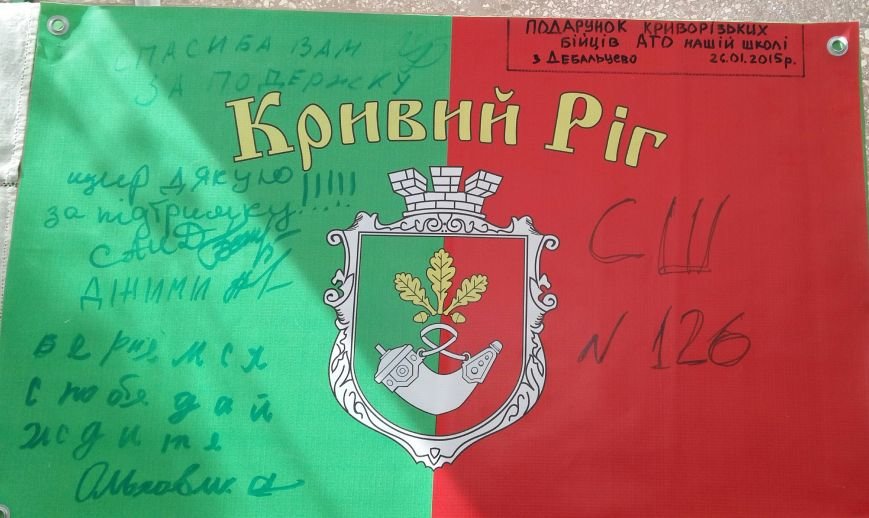 СПАСИБА ВАМ
ЗА ПОДЕРЖКУ
ПОДАРУНОК КРИВОРІЗЬКИХ
БІЙЦІВ АТО НАШІЙ ШКОЛІ
з Дебальцево 26.01.2015р.
Кривий Ріг
щир дякую !!!!!
за підтримку.....
САИД
ДІЖИМИ
Вернёмся
с победай
ждите
СШ
N 126